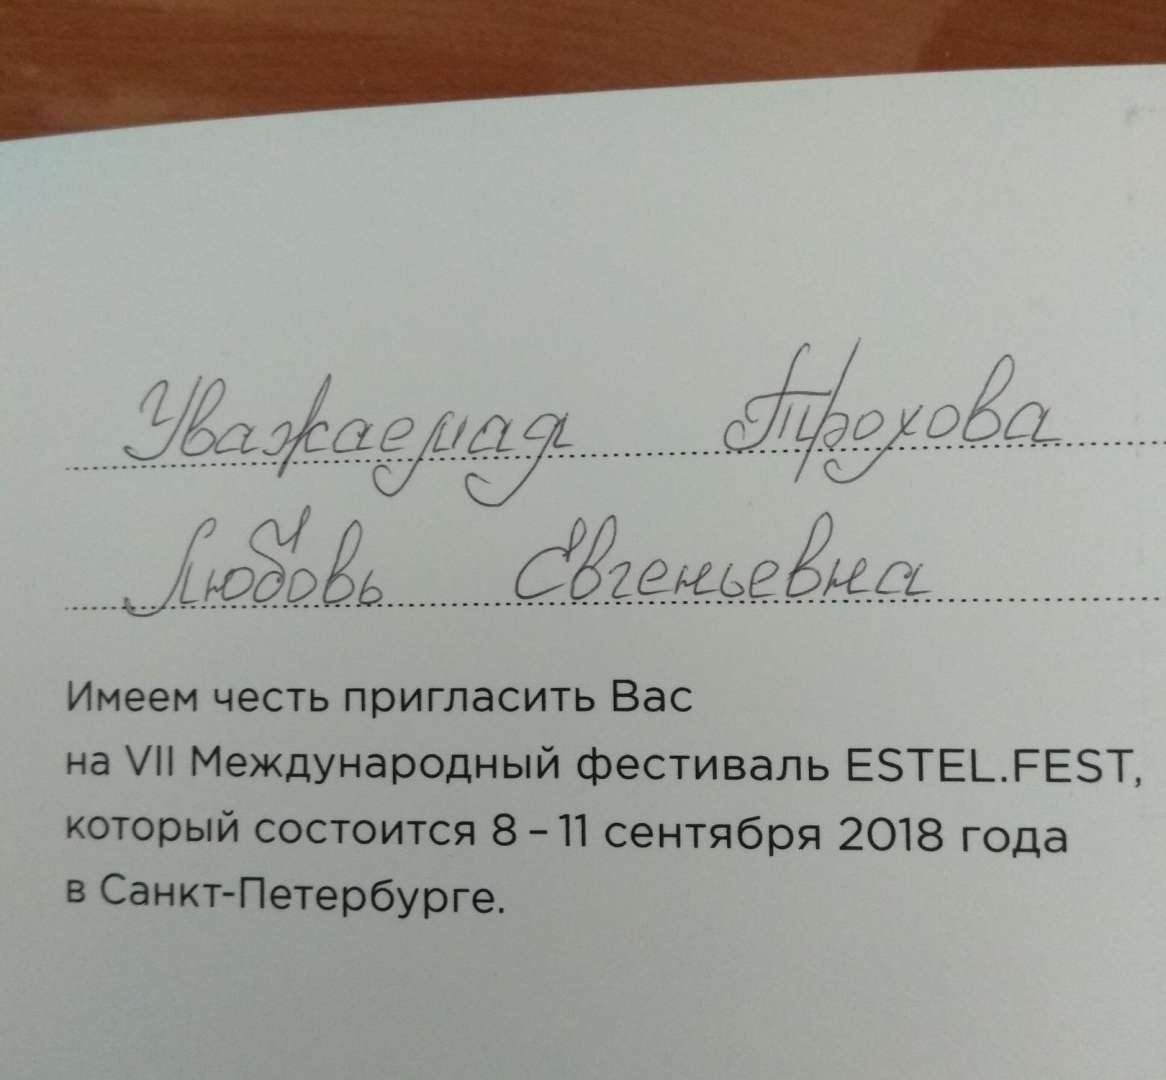 Уважаемая Трохова
Любовь Евгеньевна
Имеем честь пригласить Вас
на VII Международный фестиваль ESTEL.FEST,
который состоится 8 – 11 сентября 2018 года
в Санкт-Петербурге.